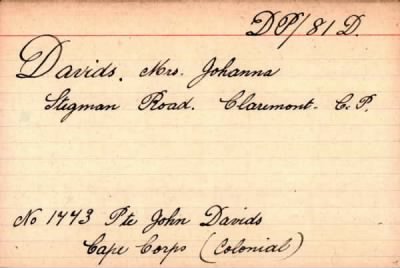 DP/81 D.
Davids. Mrs. Johanna
Stegman Road. Claremont. C.P.
No 1773 Pte John Davids
Cape Corps (Colonial)